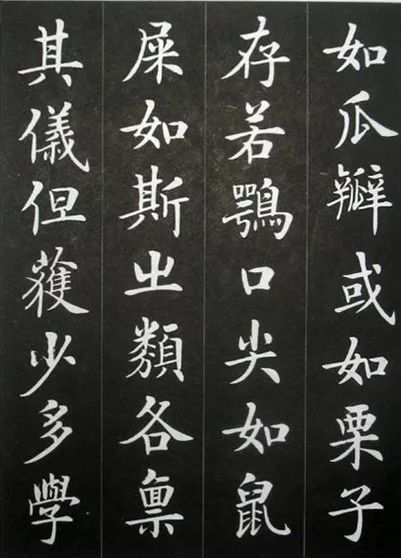 如瓜瓣或如栗子
存若鶚口尖如鼠
屎如斯出類各稟
其儀但獲少多學